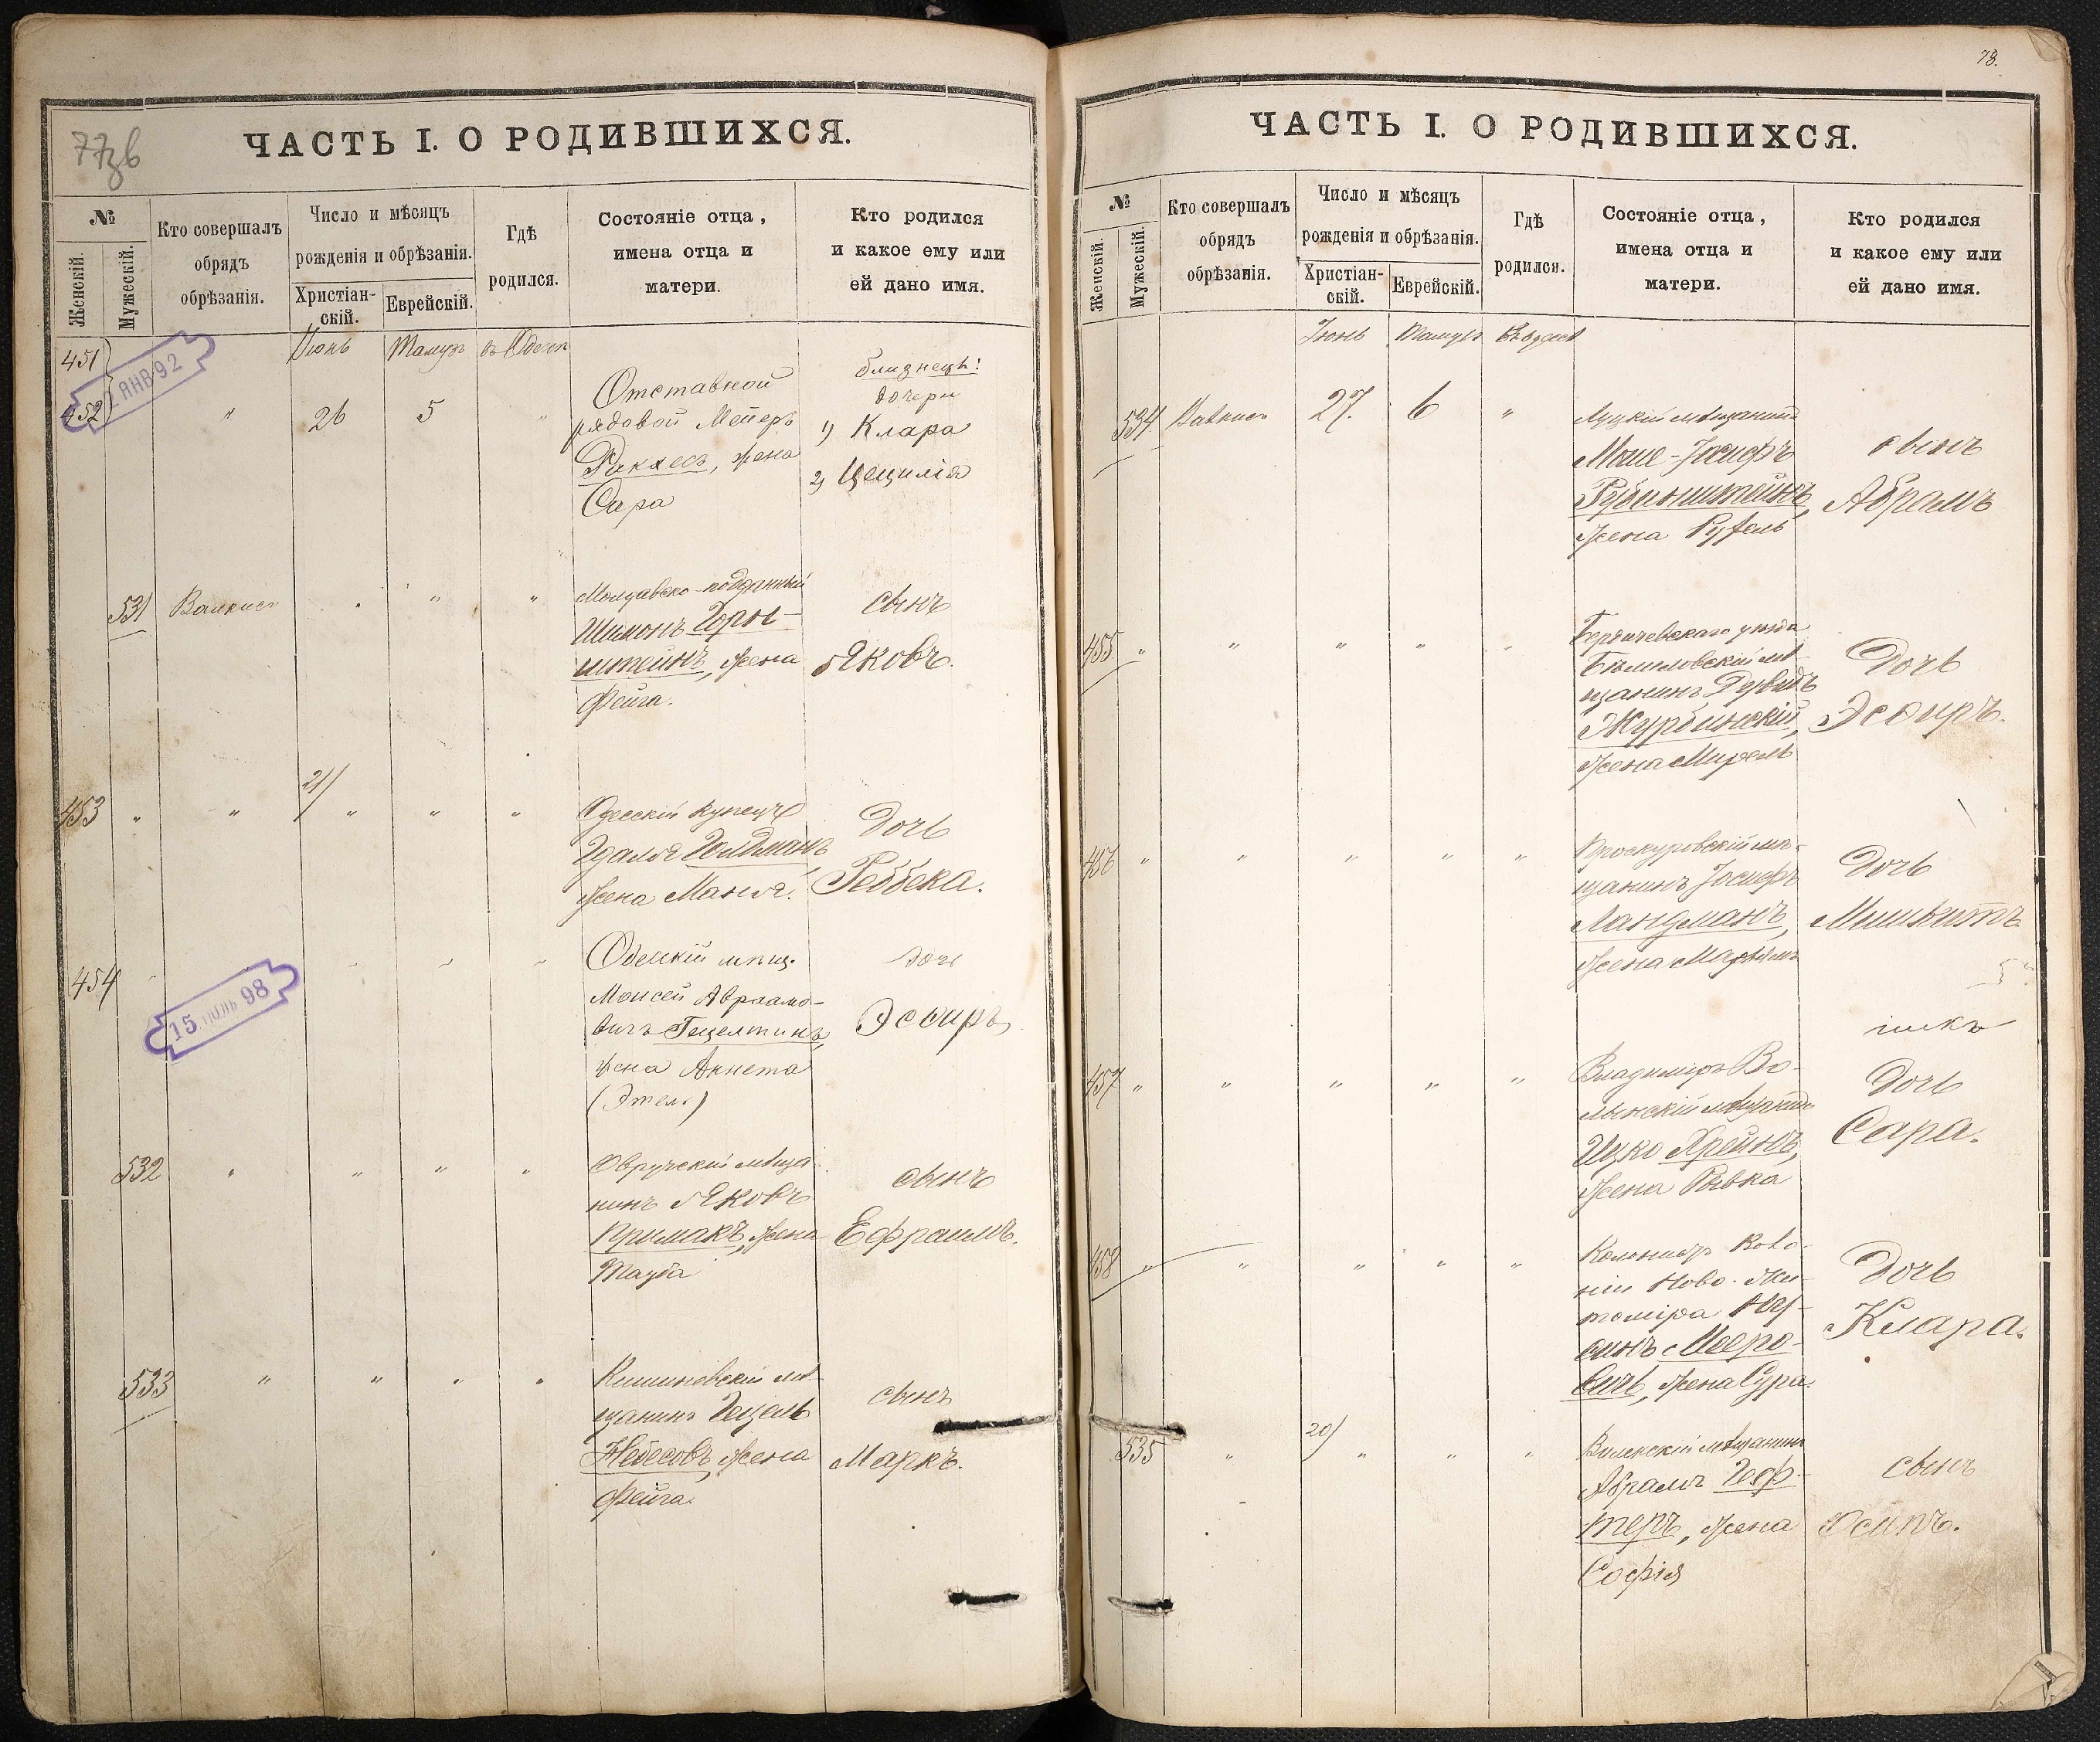 77зв
ЧАСТЬ I. О РОДИВШИХСЯ.
№
Женскій.
Мужескій.
Кто совершалъ
обрядъ
обрѣзанія.
Число и мѣсяцъ
рожденія и обрѣзанія.
Христіан-
скій.
Еврейскій.
Гдѣ
родился.
Состояніе отца,
имена отца и
матери.
Кто родился
и какое ему или
ей дано имя.
Іюнь Тамузъ въ Одессѣ
451
452
2 ЯНВ 92
" 26 5 "
Отставной
рядовой Мейеръ
жена
Сара
близнецы:
дочери
1) Клара
2) Цецилія
531 " "
Молдавско-подданный
Шимонъ Горн-
штейнъ, жена
Фейга.
сынъ
Яковъ.
453 " " 21) " " "
Одесскій купецъ
Гдаля Гольдманъ,
жена Маня.
Дочь
Реббека.
454
15 ІЮНЬ 98
Одесскій мѣщ.
Моисей Авраамо-
вичъ
жена Аннета
(Этель)
дочь
Эсѳирь
532 " " " "
Овручскій мѣща-
нинъ Яковъ
Примакъ, жена
Тауба
сынъ
Ефраимъ.
533 " " " "
Кишиневскій мѣ-
щанинъ Гецель
Небесовъ, жена
Фейга.
сынъ
Маркъ.
78.
ЧАСТЬ I. О РОДИВШИХСЯ.
№
Женскій.
Мужескій.
Кто совершалъ
обрядъ
обрѣзанія.
Число и мѣсяцъ
рожденія и обрѣзанія.
Христіан-
скій.
Еврейскій.
Гдѣ
родился.
Состояніе отца,
имена отца и
матери.
Кто родился
и какое ему или
ей дано имя.
Іюнь Тамузъ Въ Одессѣ
534 27. 6 "
Луцкій мѣщанинъ
Моше-Іосифъ
Рубинштейнъ,
жена Рухель
сынъ
Абрамъ
455 " " " " "
Бердичевскаго уѣзда
Бѣлиловскій мѣ-
щанинъ Дувидъ
Журбинскій,
жена Мирель
Дочь
Эсѳирь.
456 " " " " "
Проскуровскій мѣ-
щанинъ Іосифъ
Ландманъ,
жена
Дочь
457 " " " " "
Владиміръ Во-
лынскій мѣщанинъ
Ицко
жена Рывка
Дочь
Сара.
458 " " " " "
Колонистъ Коло-
ніи Ново-Жи-
томіра Ну-
синъ Мееро-
вичъ, жена Сура.
Дочь
Клара.
535 " 20) " " "
Виленскій мѣщанинъ
Абрамъ Геф-
теръ, жена
Софія
сынъ
Осипъ.